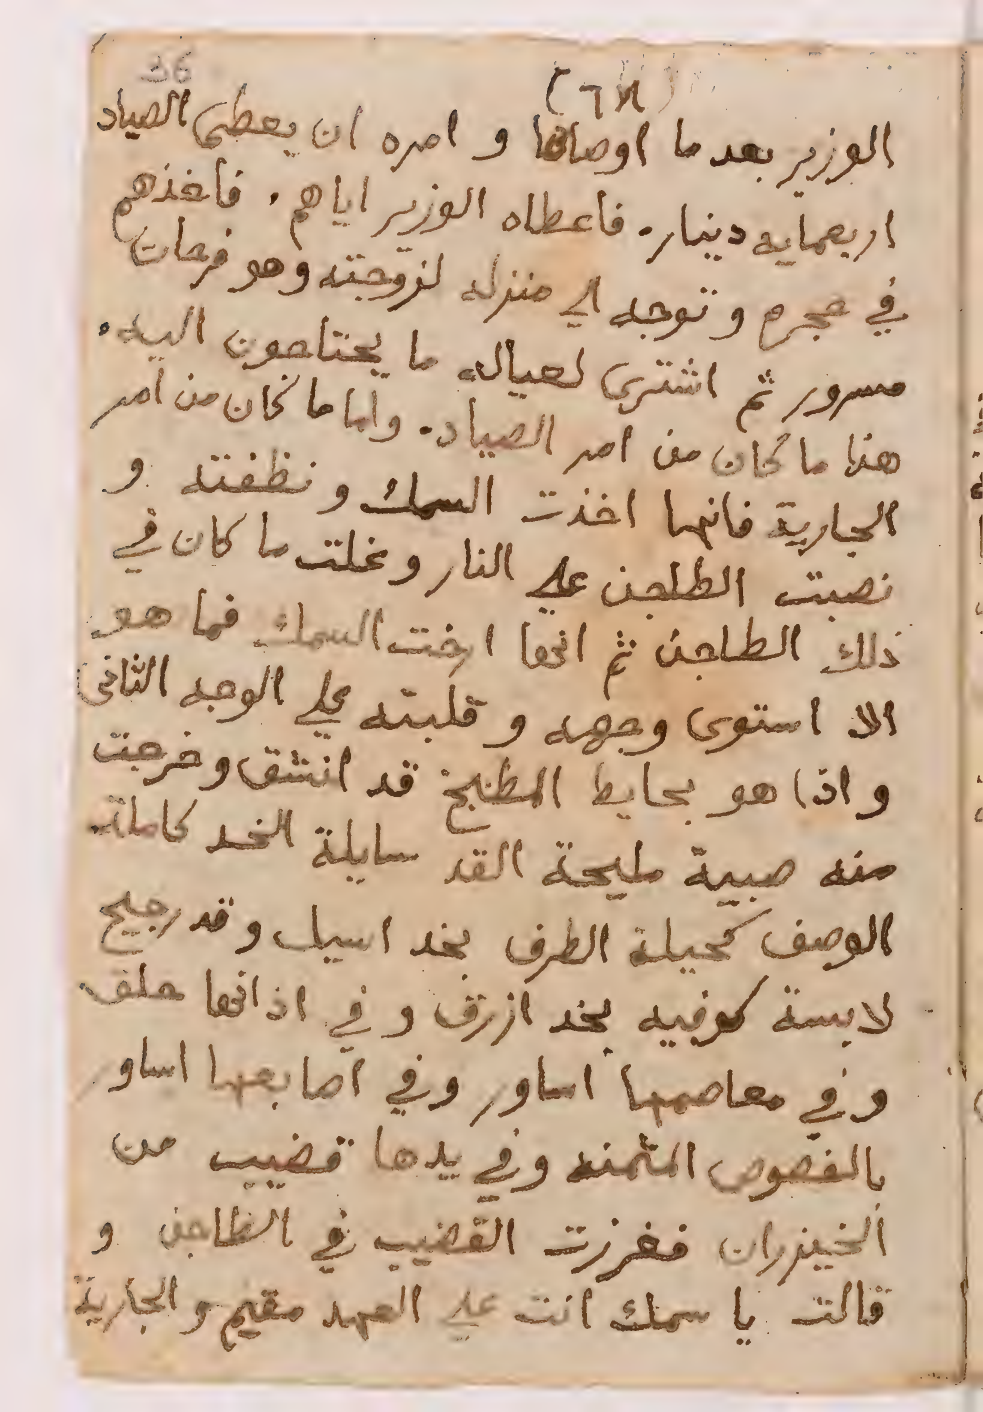 36
(٦٨)
الوزير بعد ما اوصاها و امره ان يعطى الصياد
اربعمايه دينار. فاعطاه الوزير اياهم. فاخذهم
في حجره و توجه الي منزله لزوجته وهو فرحان
مسرور ثم اشترى لعياله ما يحتاجون اليه.
هذا ما كان من امر الصياد. واما ما كان من امر
الجارية فانها اخذت السمك و نظفته و
نصبت الطاجن علي النار و غلت ما كان في
ذلك الطاجن ثم انها ارخت السمك فما هو
الا استوى وجهه و قلبته علي الوجه الثانى
و اذا هو بحايط المطبخ قد انشق و خرجت
منه صبية مليحة القد سايلة الخد كاملة
الوصف كحيلة الطرف بخد اسيل و قد رجيح
لابسة كوفيه بخد ازرق و في اذانها حلق
و في معاصمها اساور و في اصابعها اساور
بالفصوص المثمنه و في يدها قضيب من
الخيزران فغرزت القضيب في الطاجن و
قالت يا سمك انت علي العهد مقيم و الجارية